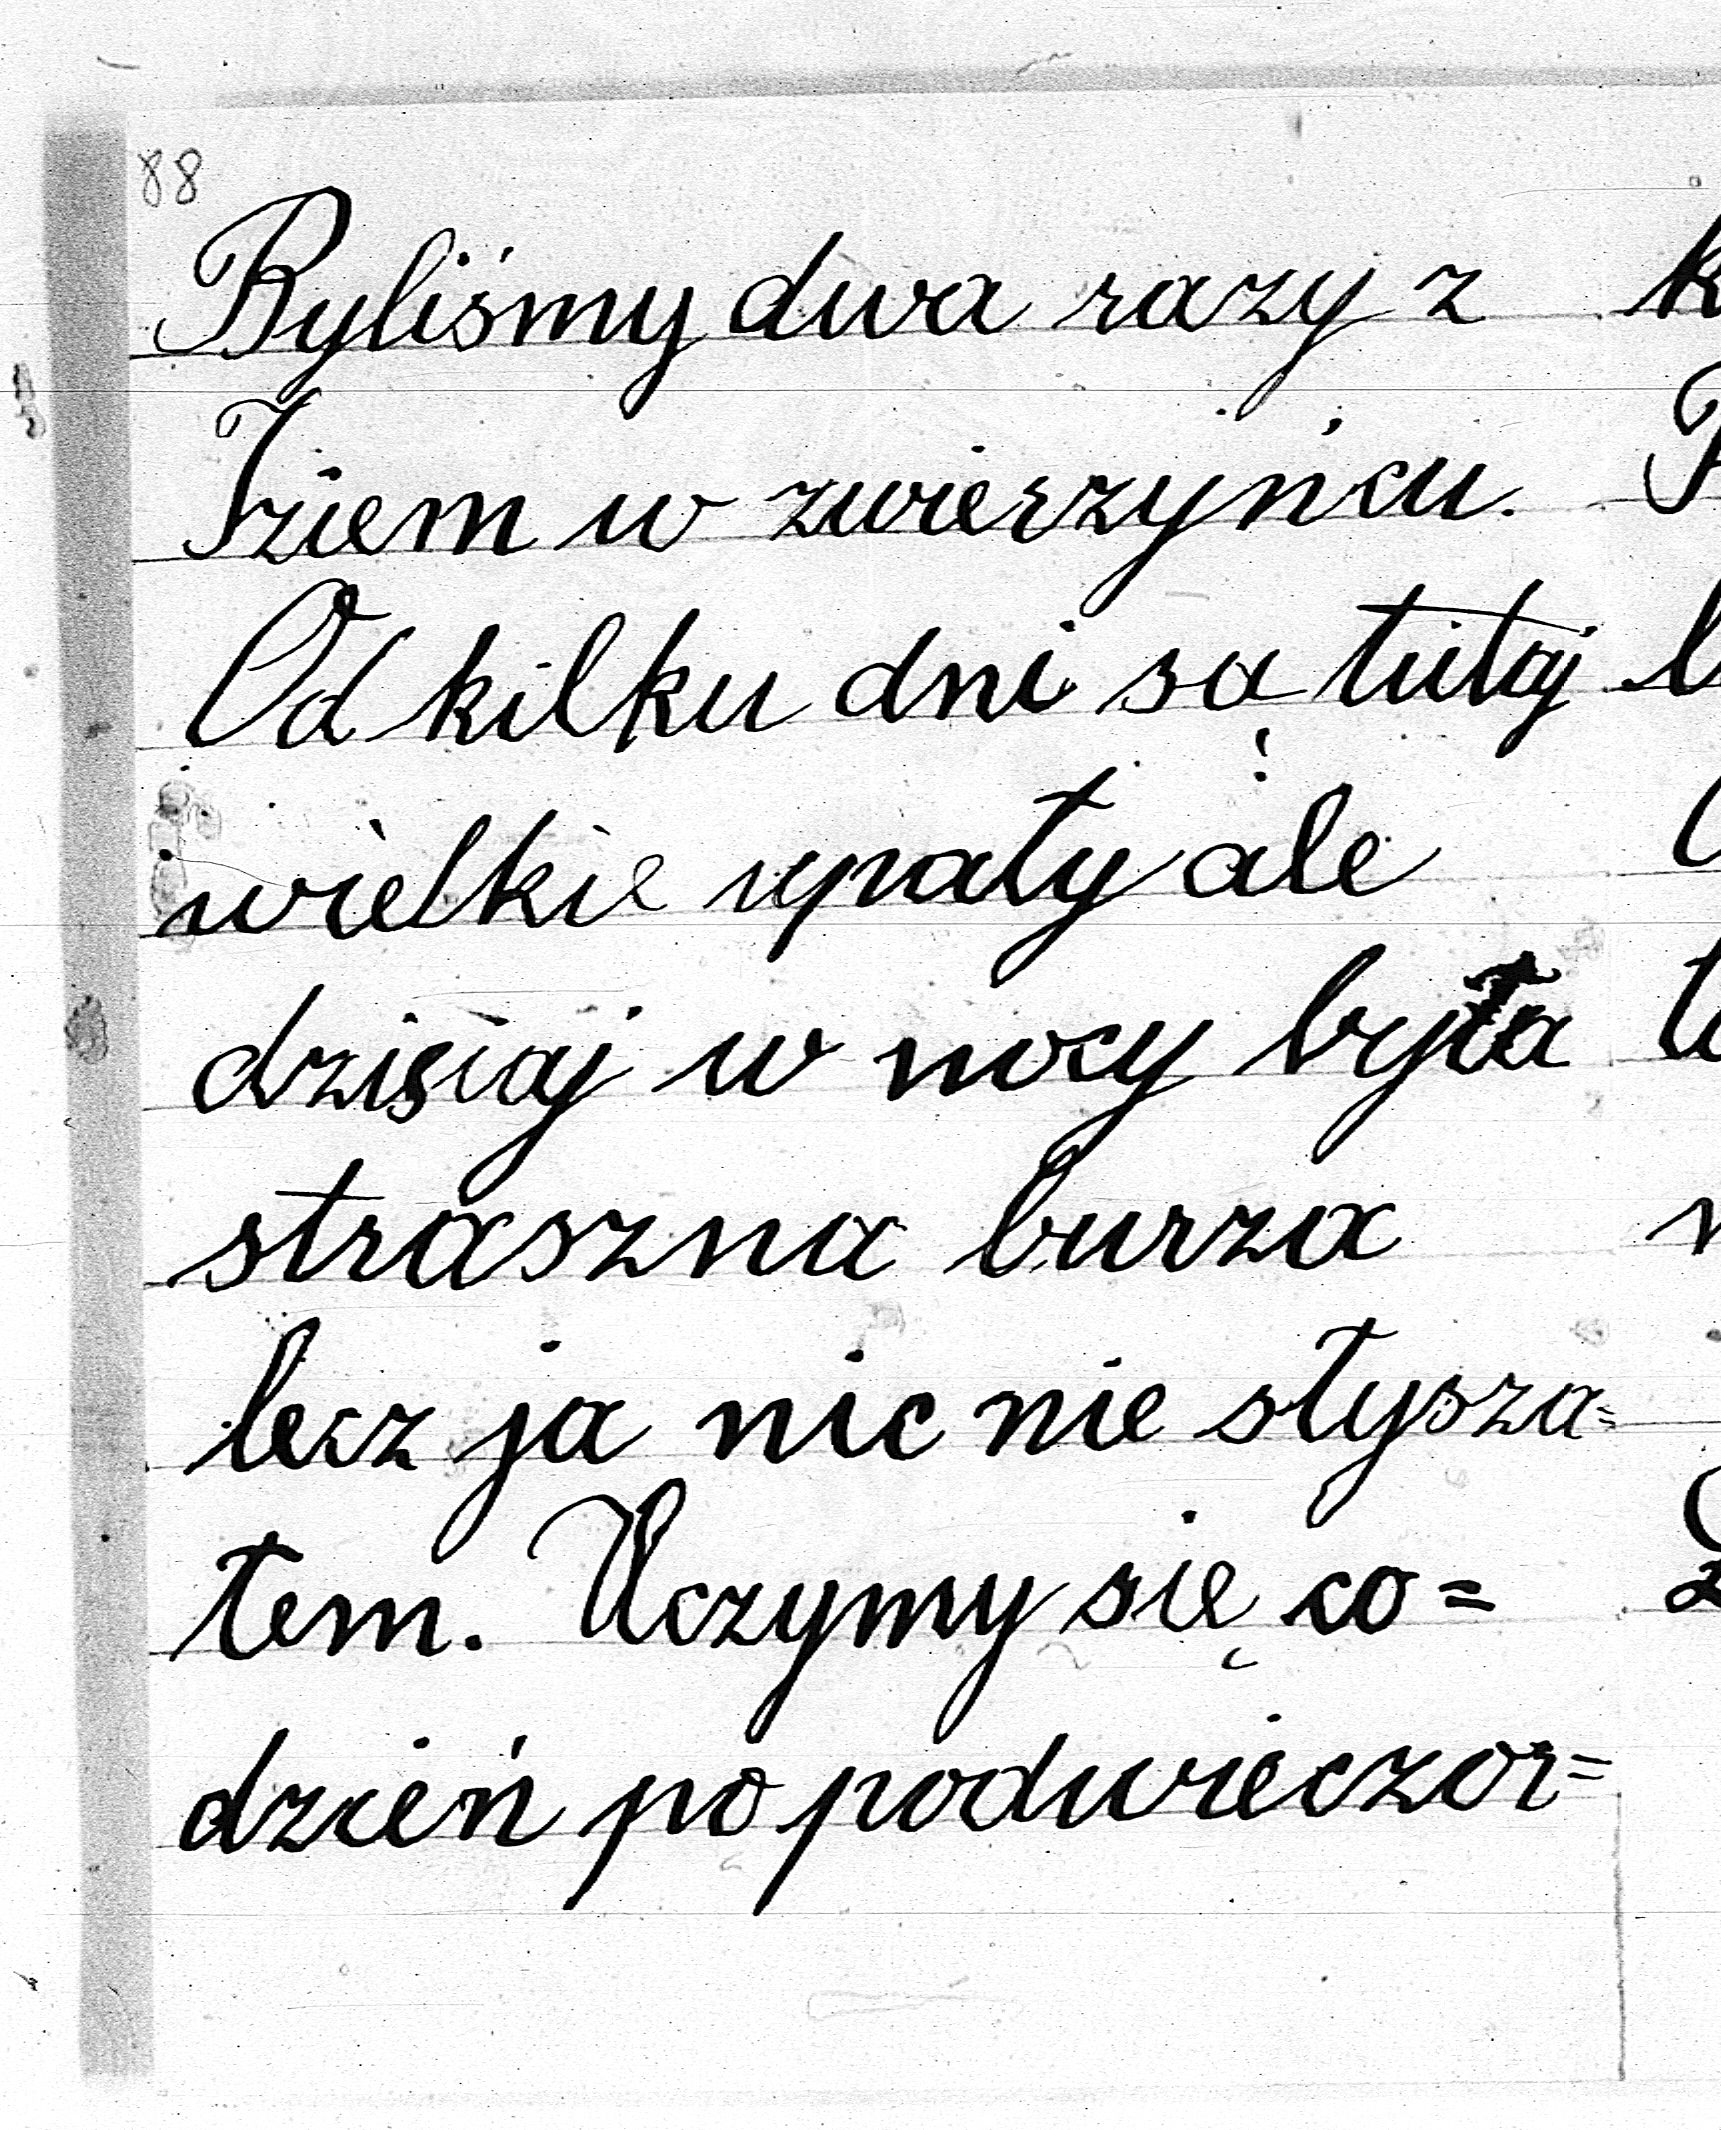 88
Byliśmy dwa razy z
Iziem w zwierzyńcu.
Od kilku dni są tutaj
wielkie upały ale
dzisiaj w nocy była
straszna burza
lecz ja nic nie słysza=
łem. Uczymy się co=
dzień po podwieczor=